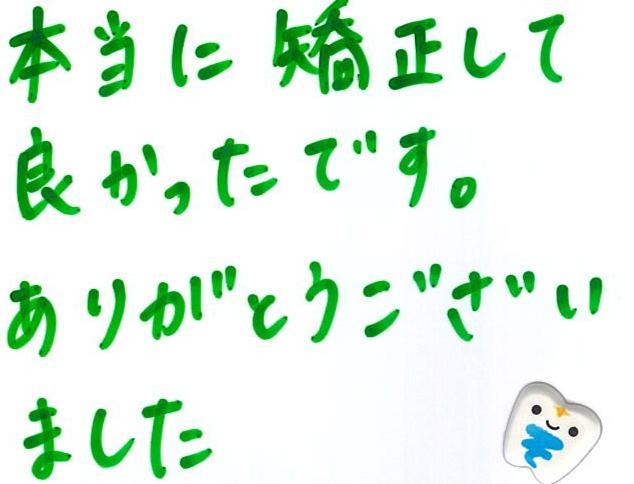 本当に矯正して
良かったです。
ありがとうござい
ました